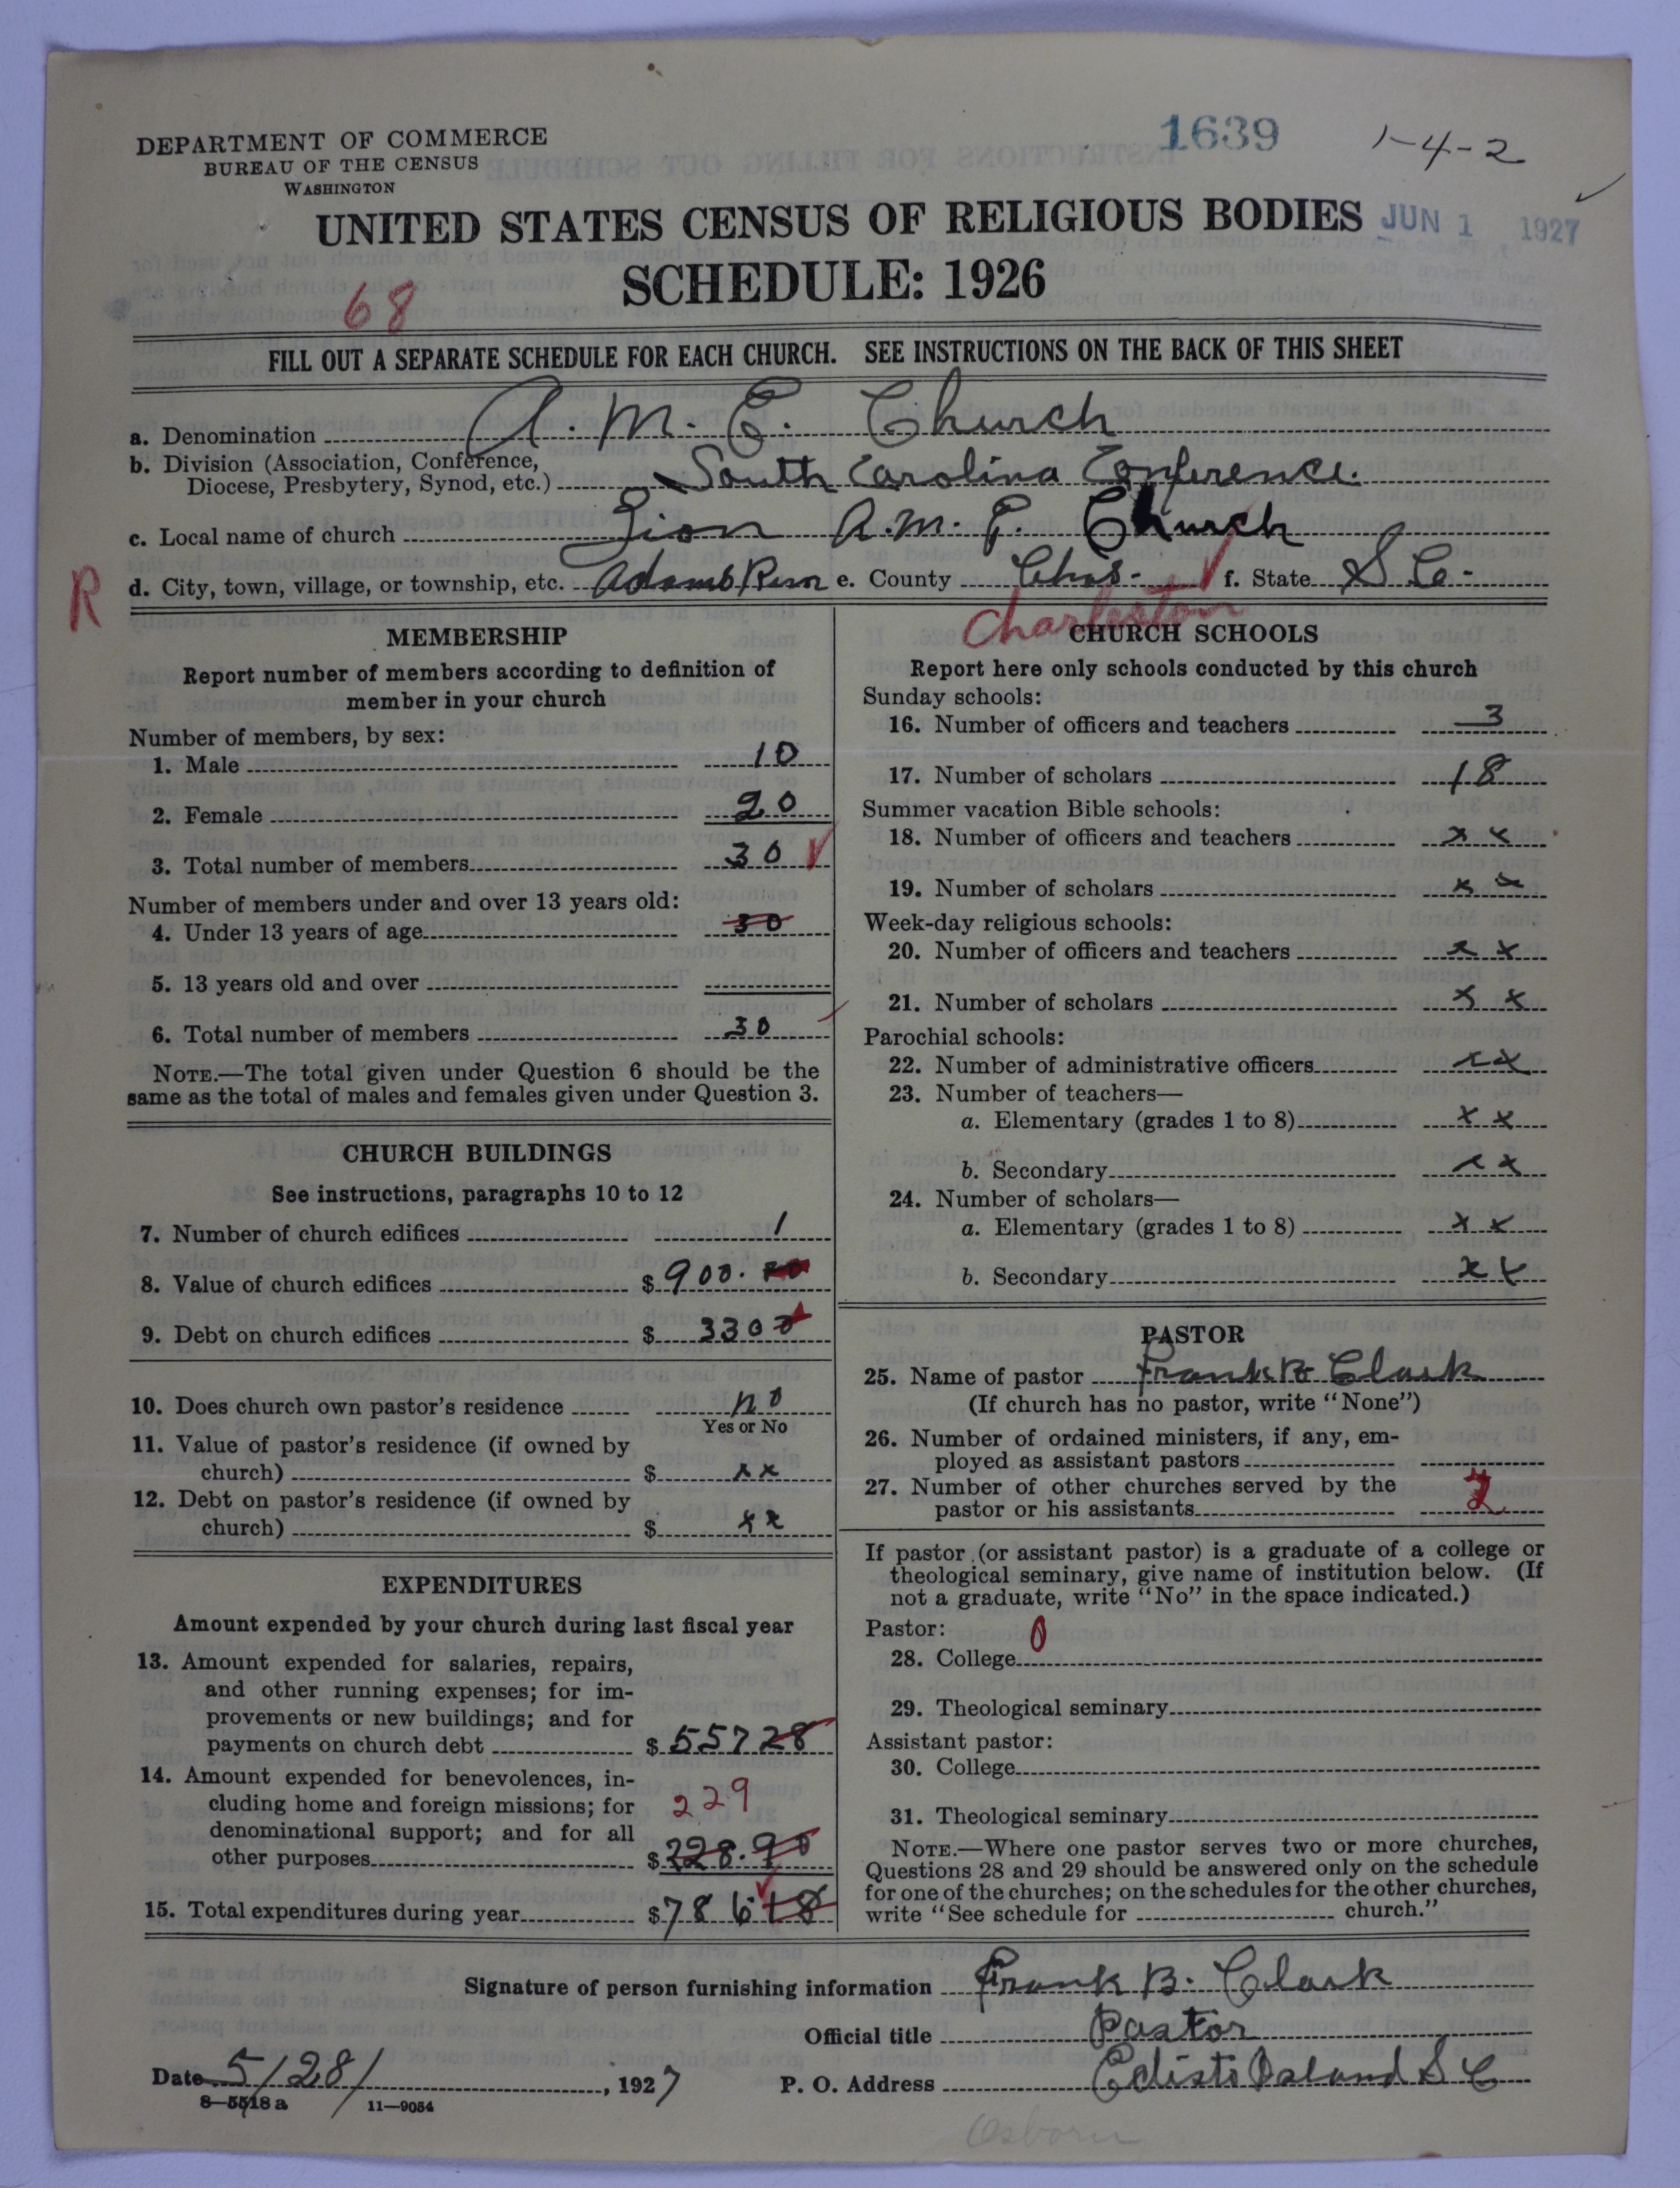 DEPARTMENT OF COMMERCE
BUREAU OF THE CENSUS
WASHINGTON
1639
1-4-2
UNITED STATES CENSUS OF RELIGIOUS BODIES
JUN 1 1927
SCHEDULE: 1926
68
FILL OUT A SEPARATE SCHEDULE FOR EACH CHURCH. SEE INSTRUCTIONS ON THE BACK OF THIS SHEET
a. Denomination A. M. E. Church
b. Division (Association, Conference,
Diocese, Presbytery, Synod, etc.) South Carolina Conference.
c. Local name of church Zion A.M.E. Church
R
d. City, town, village, or township, etc. Adams Run e. County Chas. f. State S Co.
Charleston
MEMBERSHIP
Report number of members according to definition of
member in your church
Number of members, by sex:
1. Male 10
2. Female 20
3. Total number of members 30
Number of members under and over 13 years old:
4. Under 13 years of age 30
5. 13 years old and over
6. Total number of members 30
NOTE.—The total given under Question 6 should be the
same as the total of males and females given under Question 3.
CHURCH BUILDINGS
See instructions, paragraphs 10 to 12
7. Number of church edifices 1
8. Value of church edifices $ 900.
9. Debt on church edifices $ 3300
10. Does church own pastor's residence no
Yes or No
11. Value of pastor's residence (if owned by
church) $ xx
12. Debt on pastor's residence (if owned by
church) $ xx
EXPENDITURES
Amount expended by your church during last fiscal year
13. Amount expended for salaries, repairs,
and other running expenses; for im-
provements or new buildings; and for
payments on church debt $ 55728
14. Amount expended for benevolences, in-
cluding home and foreign missions; for
229
denominational support; and for all
other purposes $ 228.90
15. Total expenditures during year $ 786 18
CHURCH SCHOOLS
Report here only schools conducted by this church
Sunday schools:
16. Number of officers and teachers 3
17. Number of scholars 18
Summer vacation Bible schools:
18. Number of officers and teachers x x
19. Number of scholars x x
Week-day religious schools:
20. Number of officers and teachers x x
21. Number of scholars x x
Parochial schools:
22. Number of administrative officers x x
23. Number of teachers—
a. Elementary (grades 1 to 8) x x
b. Secondary x x
24. Number of scholars—
a. Elementary (grades 1 to 8) x x
b. Secondary x x
PASTOR
25. Name of pastor Frank B Clark
(If church has no pastor, write "None")
26. Number of ordained ministers, if any, em-
ployed as assistant pastors
27. Number of other churches served by the
pastor or his assistants
If pastor (or assistant pastor) is a graduate of a college or
theological seminary, give name of institution below. (If
not a graduate, write "No" in the space indicated.)
Pastor: 0
28. College
29. Theological seminary
Assistant pastor:
30. College
31. Theological seminary
NOTE.—Where one pastor serves two or more churches,
Questions 28 and 29 should be answered only on the schedule
for one of the churches; on the schedules for the other churches,
write "See schedule for church."
Signature of person furnishing information Frank B. Clark
Official title Pastor
Date 5/28/, 1927
P. O. Address Edisto Island S C
8-5518 a 11-9054
Osborn